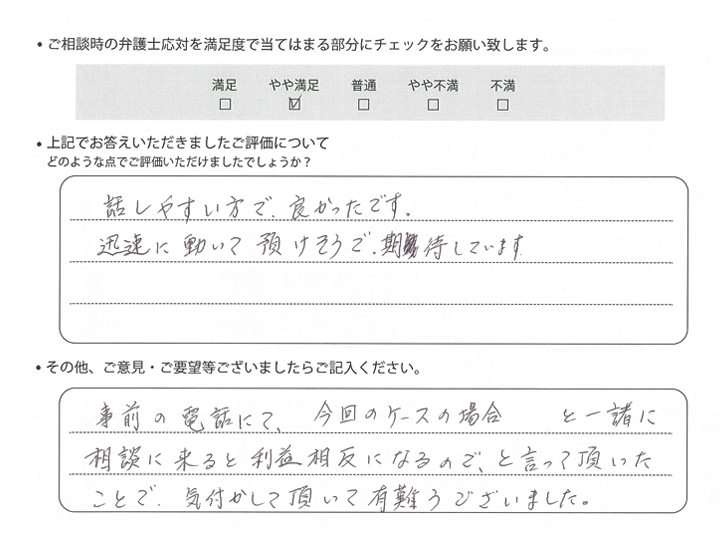 ・ご相談時の弁護士応対を満足度で当てはまる部分にチェックをお願い致します。
満足 やや満足 普通 やや不満 不満
□ ☑ □ □ □
・上記でお答えいただきましたご評価について
どのような点でご評価いただけましたでしょうか？
話しやすい方で、良かったです。
迅速に動いて預けそうで、期待しています
・その他、ご意見・ご要望等ございましたらご記入ください。
事前の電話にて、今回のケースの場合 と一諸に
相談に来ると利益相反になるので、と言って頂いた
ことで、気付かして頂いて有難うございました。